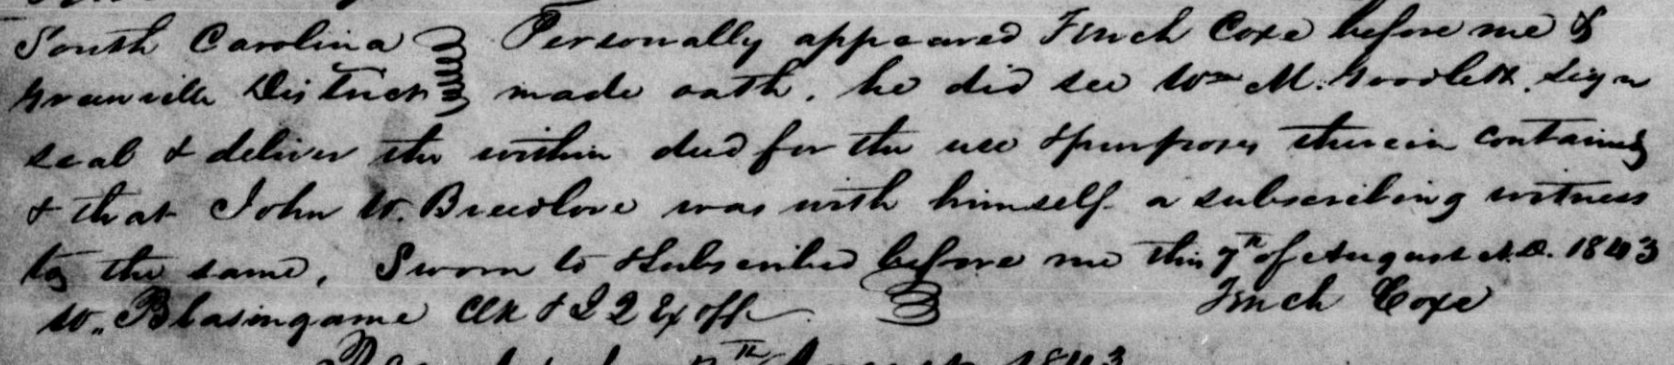 South Carolina Personally appeared Finch Coxe before me &
Greenville District made oath. he did see Wm M. Goodlett. sign
seal & deliver the within deed for the use & purposes therein contained
& that John W. Breedlove was with himself a subscribing witness
to the same, Sworn to & subscribed before me this 7th of August A.D. 1843
W. Blasingame Clk & J Q Ex off Finch Coxe
August 1843